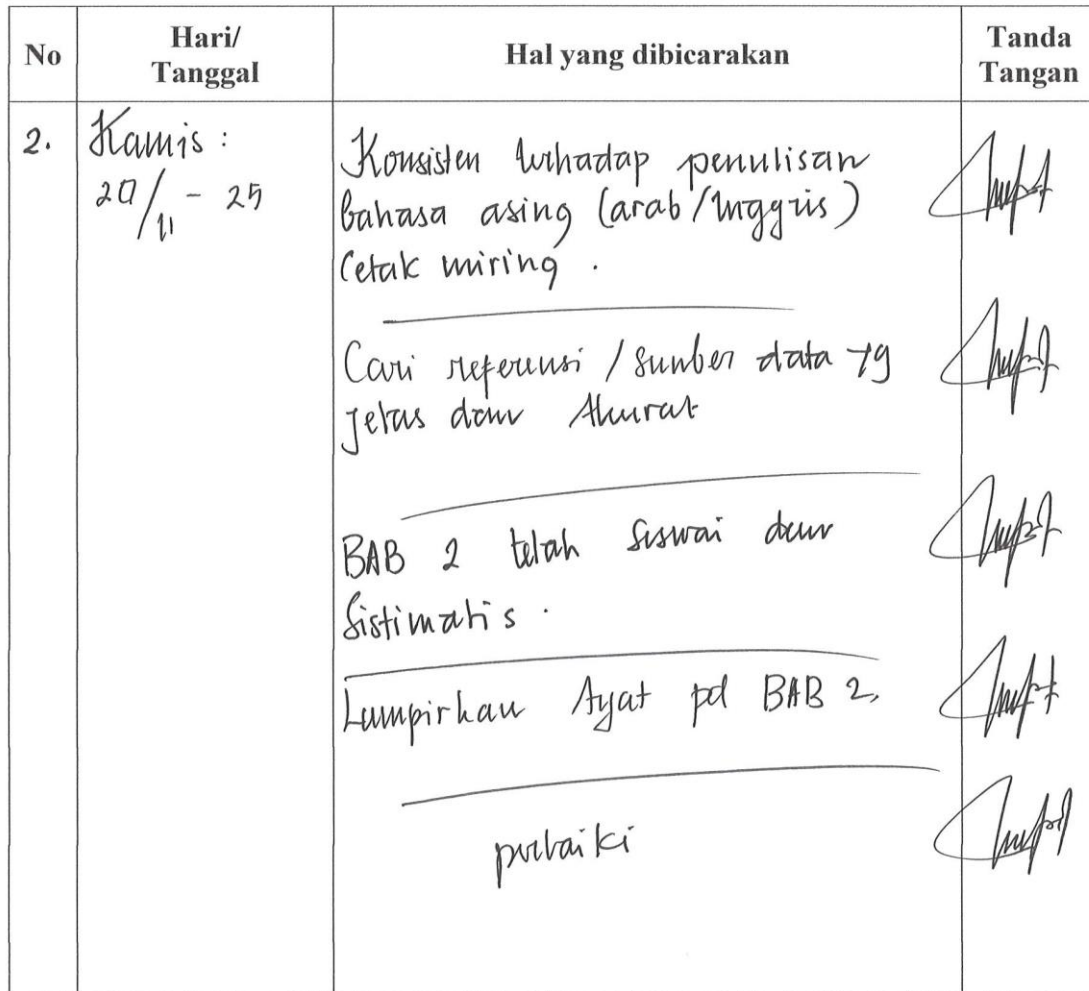 No
Hari/
Tanggal
Hal yang dibicarakan
Tanda
Tangan
2.
Kamis :
20/11 - 25
Konsisten terhadap penulisan
bahasa asing (arab/Inggris)
Cetak miring .
Cari referensi / sumber data yg
Jelas dan Akurat
BAB 2 telah sesuai dan
Sistimatis .
Lampirkan Ayat pd BAB 2,
perbaiki